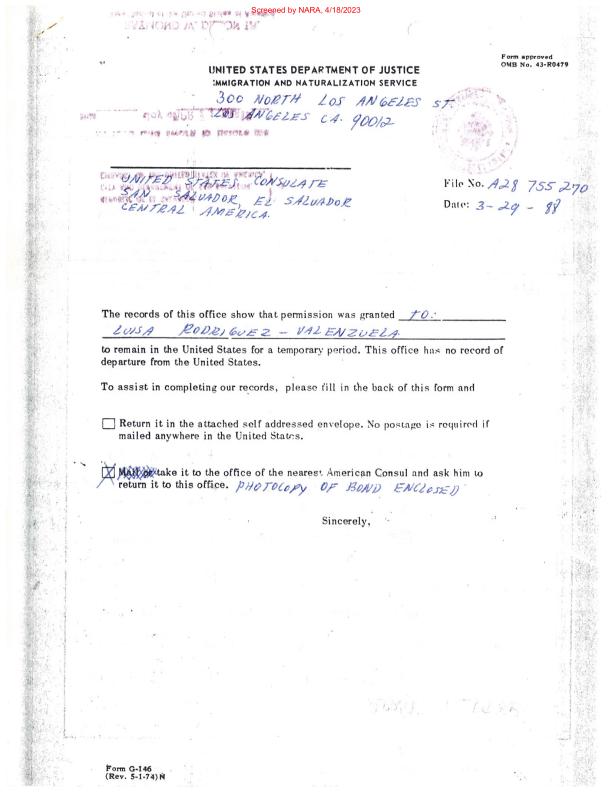 Screened by NARA, 4/18/2023
Form approved
OMB No. 43-R0479
UNITED STATES DEPARTMENT OF JUSTICE
IMMIGRATION AND NATURALIZATION SERVICE
300 NORTH LOS ANGELES ST.
LOS ANGELES CA. 90012
UNITED STATES CONSULATE
SAN SALVADOR, EL SALVADOR
CENTRAL AMERICA.
File No. A28 755 270
Date: 3-29-88
The records of this office show that permission was granted TO:
LUISA RODRIGUEZ - VALENZUELA
to remain in the United States for a temporary period. This office has no record of
departure from the United States.
To assist in completing our records, please fill in the back of this form and
Return it in the attached self addressed envelope. No postage is required if
mailed anywhere in the United States.
X Mail or take it to the office of the nearest American Consul and ask him to
return it to this office. PHOTOCOPY OF BOND ENCLOSED
Sincerely,
Form G-146
(Rev. 5-1-74) N